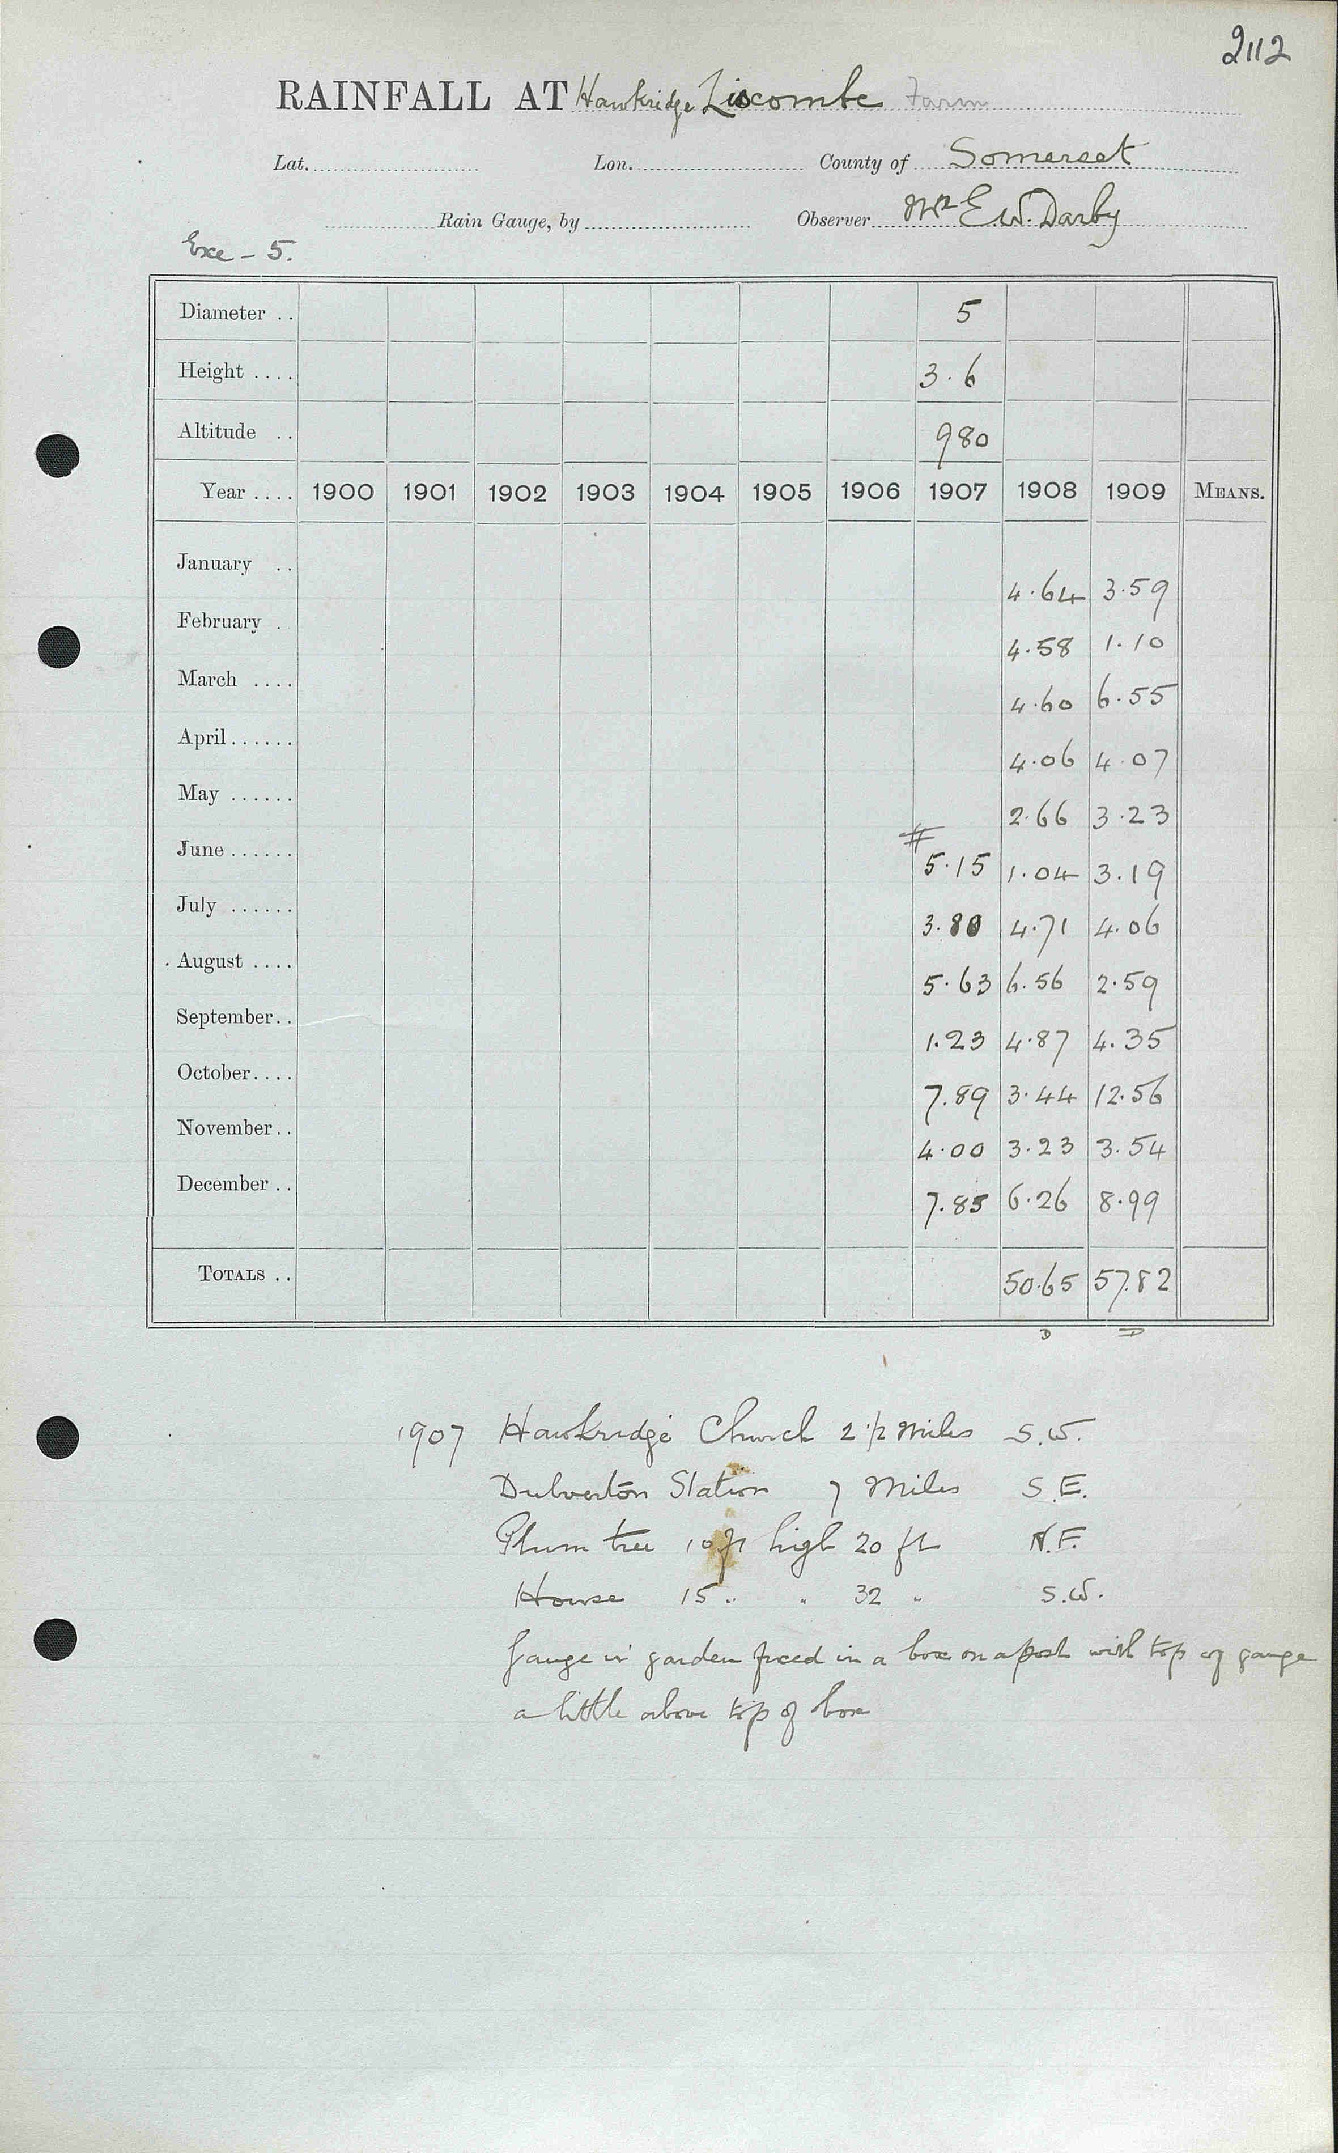 2112
RAINFALL AT Hawkridge Liscombe Farm
Lat. Lon. County of Somerset
Rain Gauge, by Observer Mr E.W. Darby
Exe - 5.
Diameter .. 5
Height .... 3.6
Altitude .. 980
Year .... 1900 1901 1902 1903 1904 1905 1906 1907 1908 1909 MEANS.
January .. 4.64 3.59
February . 4.58 1.10
March .... 4.60 6.55
April ...... 4.06 4.07
May ...... 2.66 3.23
June ...... # 5.15 1.04 3.19
July ...... 3.80 4.71 4.06
August .... 5.63 6.56 2.59
September.. 1.23 4.87 4.35
October.... 7.89 3.44 12.56
November.. 4.00 3.23 3.54
December .. 7.85 6.26 8.99
TOTALS .. 50.65 57.82
D D
1907 Hawkridge Church 2 1/2 Miles S.W.
Dulverton Station 7 Miles S.E.
Plum tree 10 ft high 20 ft N.E.
House 15 " " 32 " S.W.
Gauge in garden fixed in a box on a post with top of gauge
a little above top of box